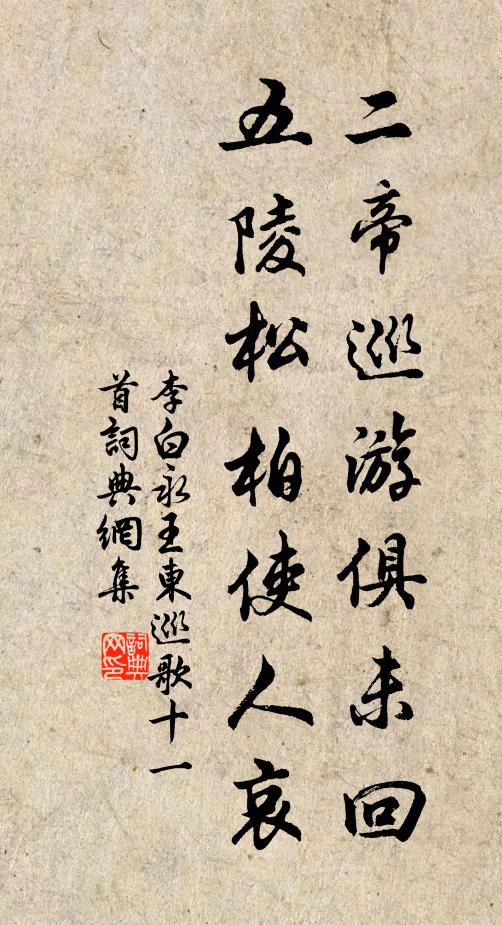 二帝巡游俱未回
五陵松柏使人哀
李白永王東巡歌十一
首詞典網集
詞典
网印